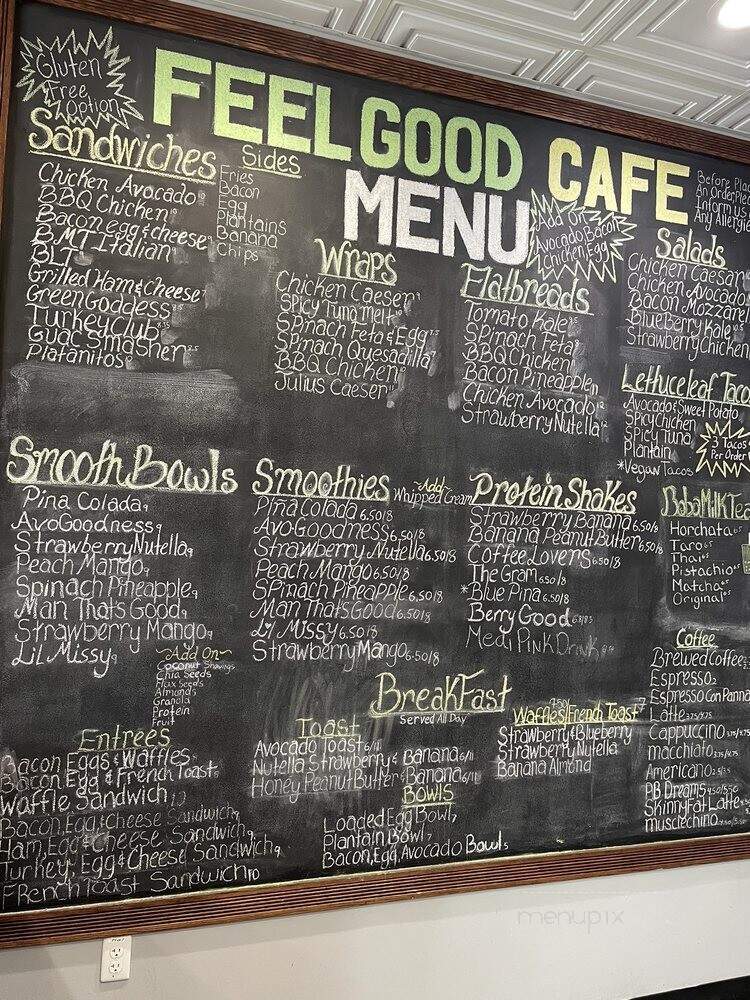 Gluten
Free
Option
FEEL GOOD CAFE
MENU
Before Pla
An Order Ple
Inform us
Any Allergie
Sandwiches
Chicken Avocado
BBQ Chicken
Bacon egg & cheese
B.M.T-Italian
BLT
Grilled Ham & Cheese
Green Goddess
Turkey Club
Guac Smasher
Platanitos
Sides
Fries
Bacon
Egg
Plantains
Banana
Chips
Wraps
Chicken Caeser
Spicy Tuna Melt
Spinach Feta & Egg
Spinach Quesadilla
BBQ Chicken
Julius Caeser
Add On
Avocado Bacon
Chicken, Egg
Flatbreads
Tomato Kale
Spinach Feta
BBQ Chicken
Bacon Pineapple
Chicken Avocado
Strawberry Nutella
Salads
Chicken Caesar
Chicken Avocado
Bacon Mozzarel
BlueBerry Kale
Strawberry Chicken
Lettuceleaf Taco
Avocado & Sweet Potato
Spicy Chicken
Spicy Tuna
Plantain
*Vegan Tacos
3 Tacos
Per Order
Smooth Bowls
Pina Colada 9
AvoGoodness 9
Strawberry Nutella 9
Peach Mango 9
Spinach Pineapple 9
Man Thats Good 9
Strawberry Mango 9
Lil Missy 9
~Add On~
Coconut Shavings
Chia Seeds
Flax Seeds
Almonds
Granola
Protein
Fruit
Smoothies
~Add~
Whipped Cream
Pina Colada 6.50/8
Avo-Goodness 6.50/8
Strawberry Nutella 6.50/8
Peach Mango 6.50/8
Spinach Pineapple 6.50/8
Man Thats Good 6.50/8
Lil Missy 6.50/8
Strawberry Mango 6.50/8
Protein Shakes
Strawberry Banana 6.50/8
Banana Peanut Butter 6.50/8
Coffee Lovers 6.50/8
The Gram 6.50/8
*Blue Pina 6.50/8
Berry Good
Medi Pink Drink
Boba Milk Tea
Horchata
Taro
Thai
Pistachio
Matcha
Original
Coffee
Brewed Coffee
Espresso 2
Espresso Con Panna
Latte 3.75/4.75
Cappuccino 3.75/4.75
macchiato 3.75/4.75
Americano
PB Dreams 4.50/5.50
Skinny Fat Latte
musclechino
BreakFast
Served All Day
Entrees
Bacon Eggs & Waffles
Bacon Egg & French Toast
Waffle Sandwich 10
Bacon, Egg & Cheese Sandwich 9
Ham, Egg & Cheese Sandwich 9
Turkey, Egg & Cheese Sandwich 9
French Toast Sandwich 10
Toast
Avocado Toast 6/11
Nutella Strawberry & Banana 6/11
Honey Peanut Butter & Banana 6/11
Bowls
Loaded Egg Bowl 7
Plantain Bowl 7
Bacon, Egg, Avocado Bowl
Waffles/French Toast
Strawberry & Blueberry
Strawberry Nutella
Banana Almond
menupix